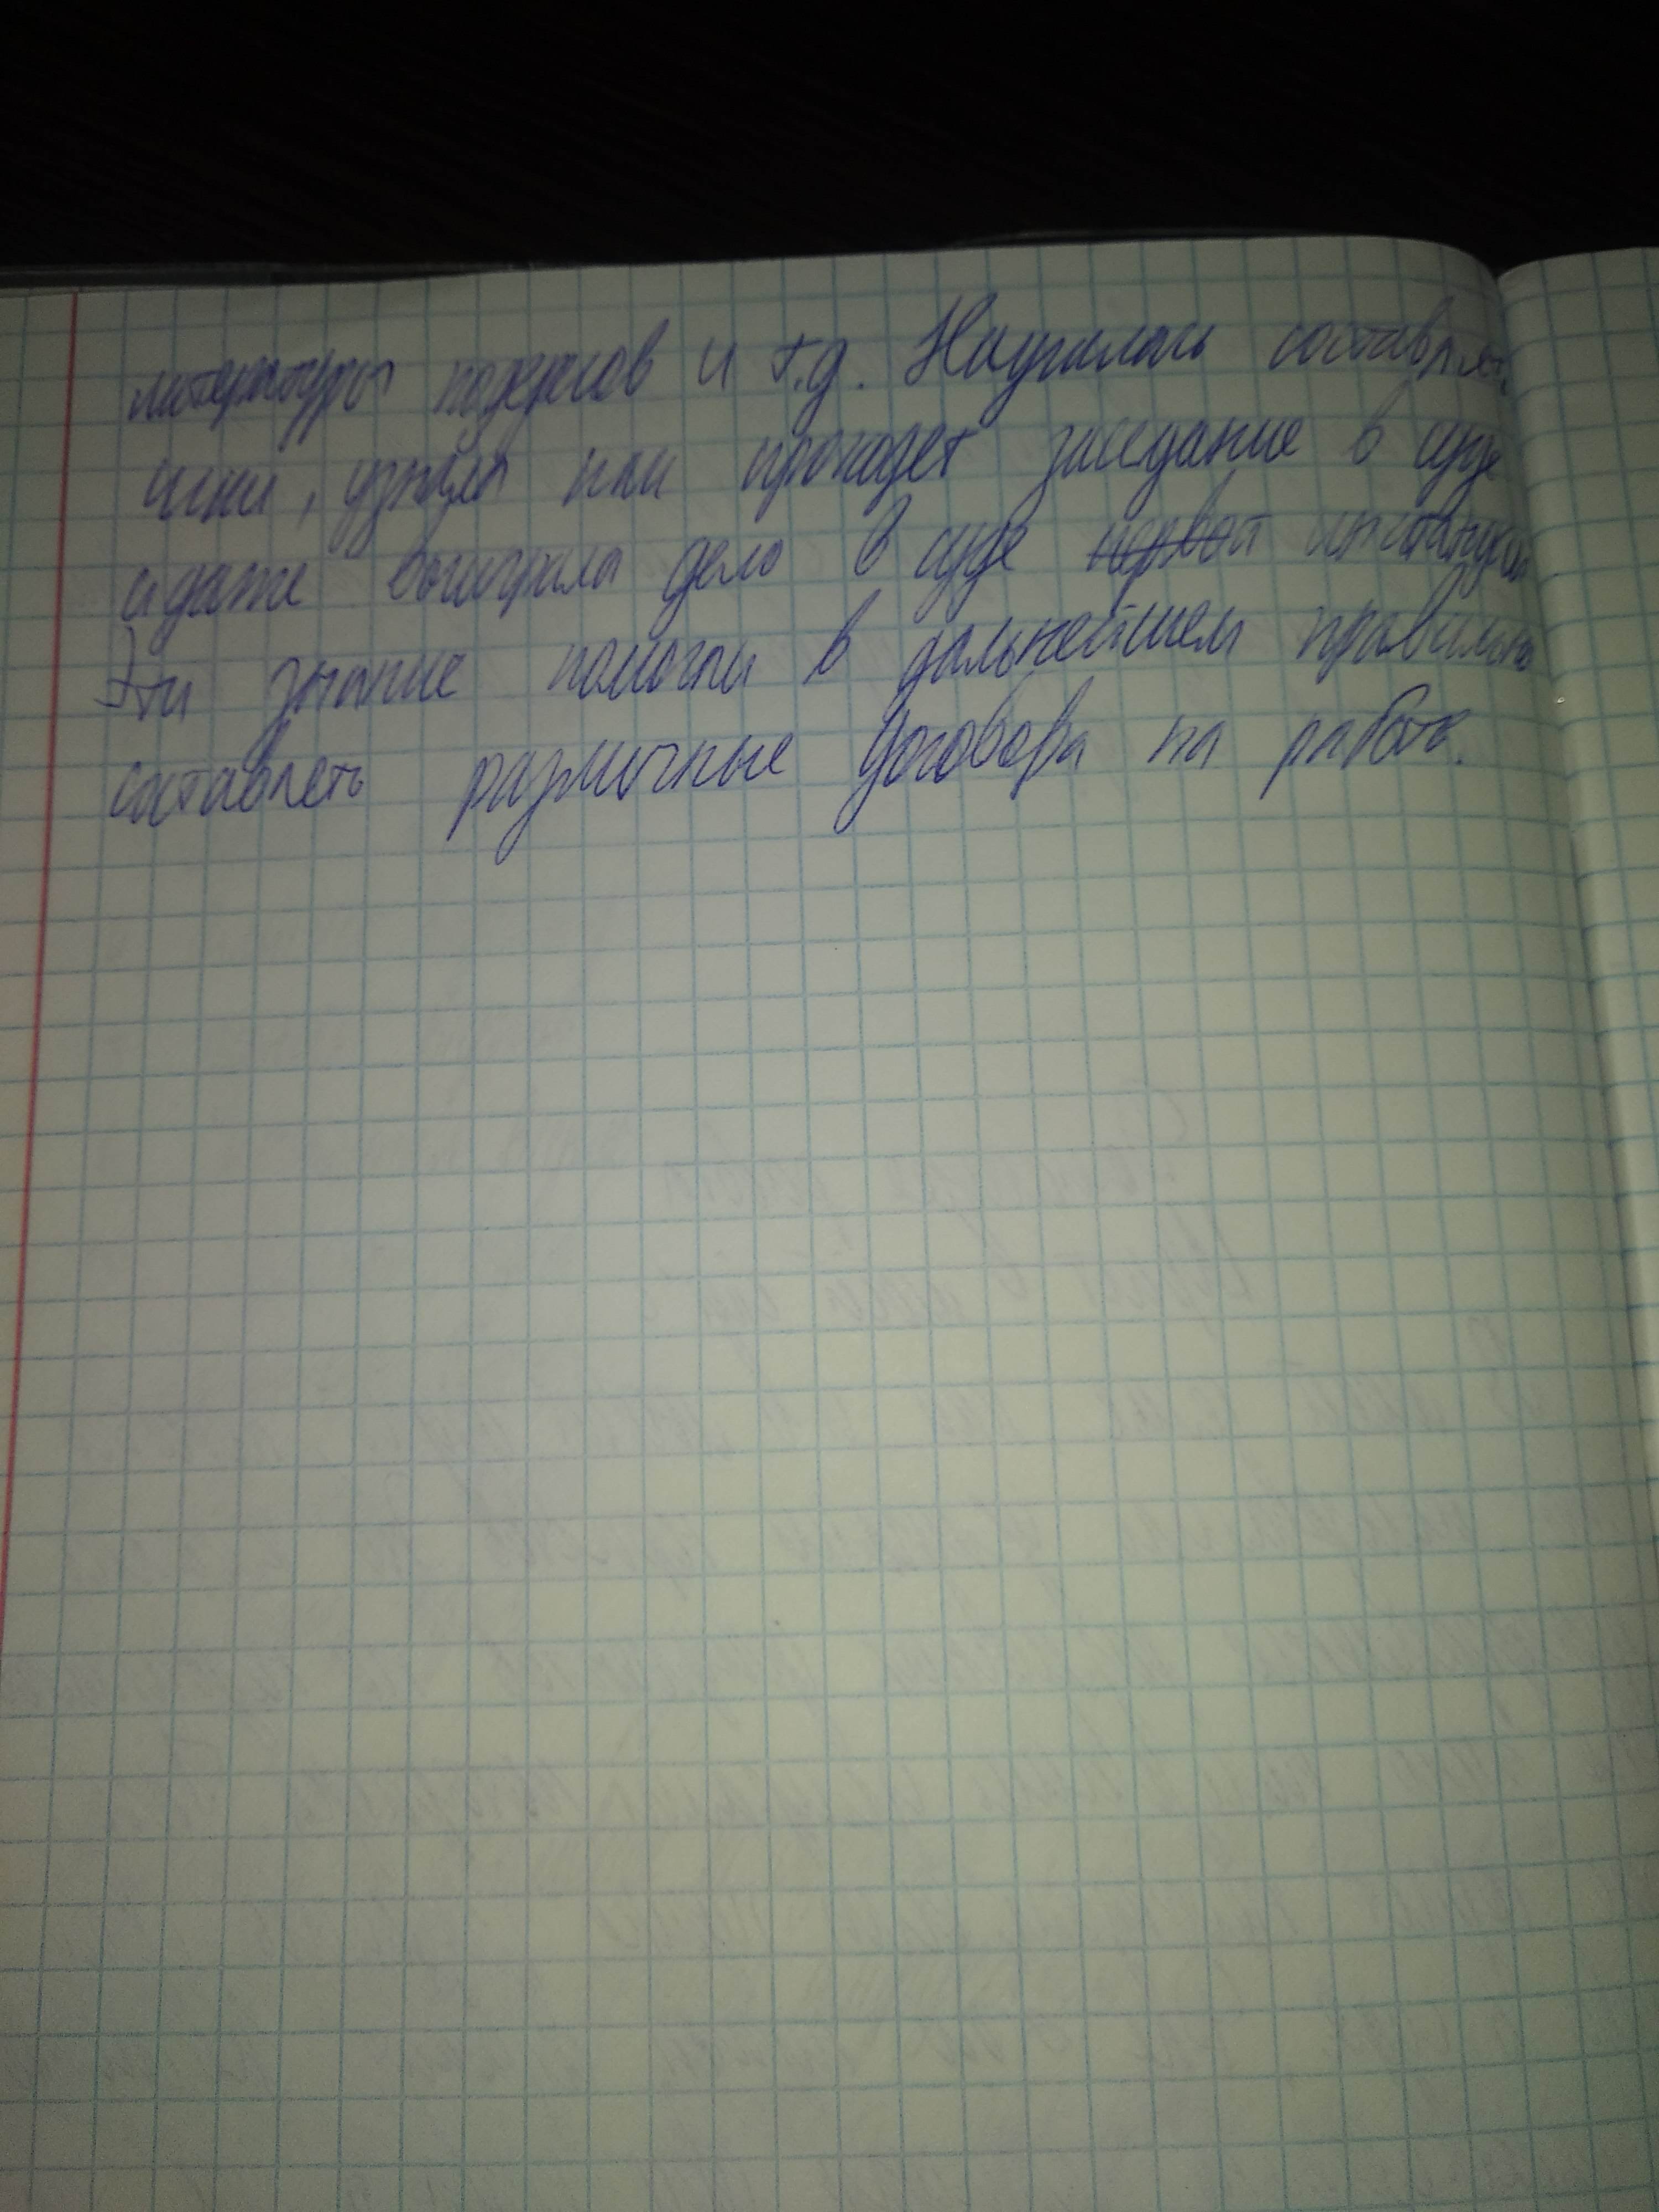 литературы кодексов и т.д. Научилась составлять
иски, узнала как проходет заседание в суде
и даже выиграла дело в суде первой инстанции
Эти знание помогли в дальнейшем правильно
составлеть различные договора на работе.